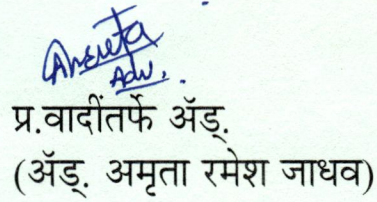 Amruta
Adv.
प्र.वादींतर्फे ॲड्.
(ॲड्. अमृता रमेश जाधव)